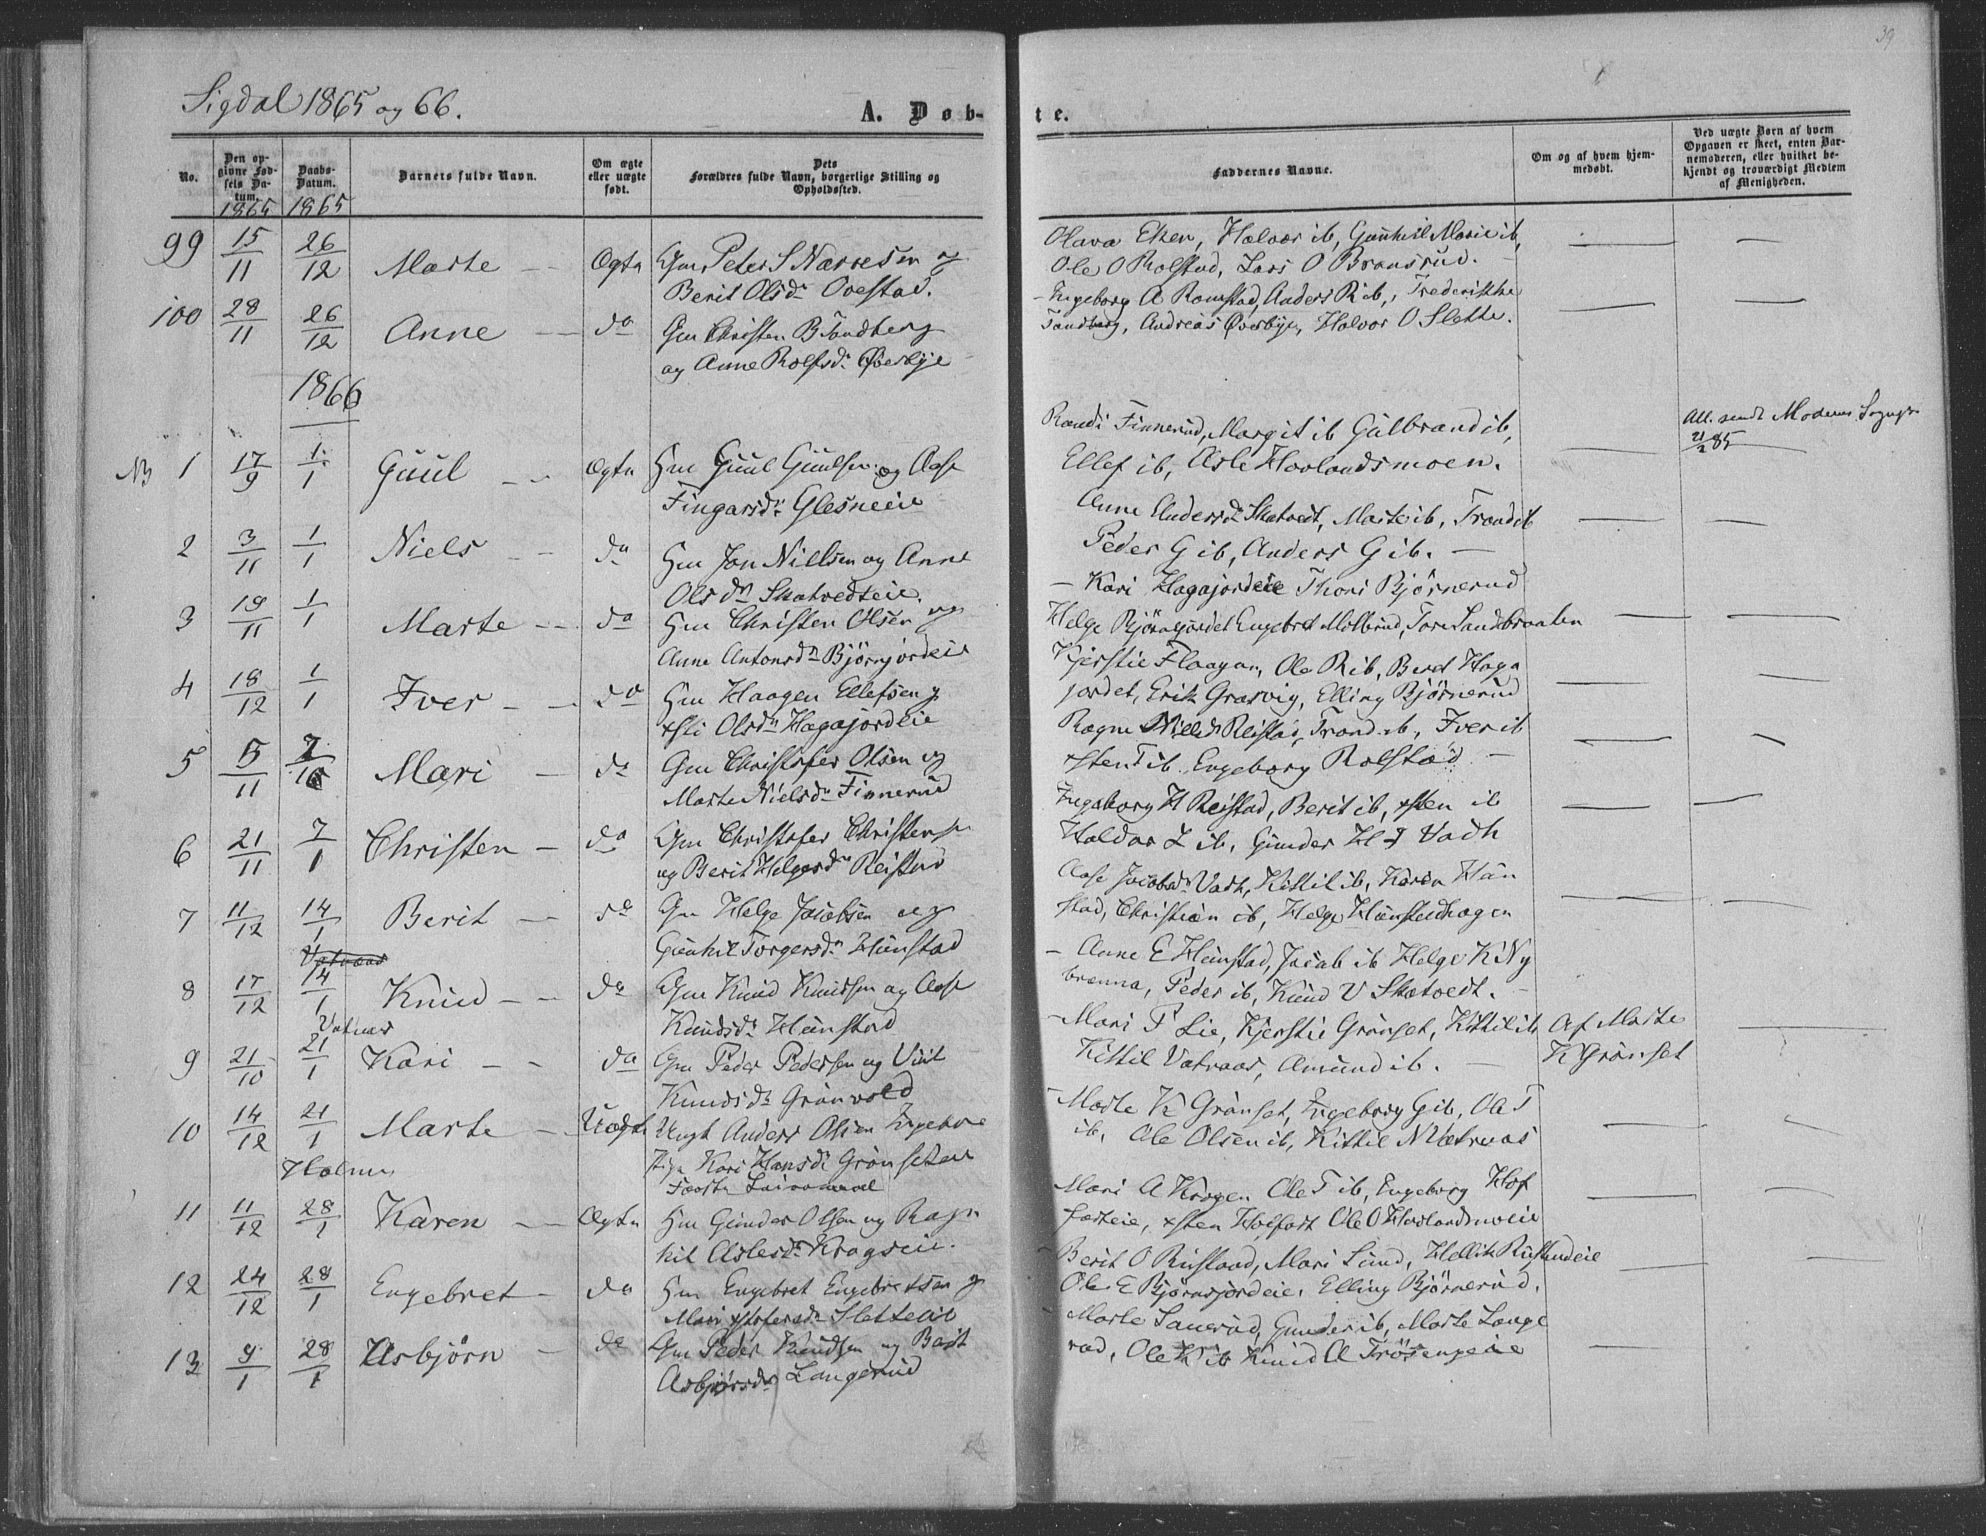 39
Sigdal 1865 og 66.
A. Døb-
te.
No.
Den op-
givne Fød-
sels Da-
tum.
Daabs-
Datum.
Barnets fulde Navn.
Om ægte
eller uægte
født.
Dets
Forældres fulde Navn, borgerlige Stilling og
Opholdssted.
Faddernes Navne.
Om og af hvem hjem-
medøbt.
Ved uægte Børn af hvem
Opgaven er skeet, enten Bar-
nemoderen, eller hvilket be-
kjendt og troværdigt Medlem
af Menigheden.
1865 1865
99 15/11 26/12 Marte Ægte Gm Peter S Narvesen og
Berit Olsd. Ovestad.
Olava Eken, Halvor ib, Gunhil Marie ib,
Ole O Rolstad, Lars O Bransrud.
100 28/11 26/12 Anne do Gm Christen B Sandberg
og Anne Rolfsd. Øvesbye
Engeborg A Romstad, Anders R ib, Frederikke
Sandberg, Andreas Øvesbye, Halvor O Slette.
1866
NB 1 17/9 1/1 Guul Ægte Hm Guul Guulsen og Aase
Fingarsd. Glesneeie
Randi Finnerud, Margit ib Gulbrand ib,
Ellef ib, Asle Hovlandsmoen.
Att. sendt Moderens Sognepr
21/2 85
2 3/11 1/1 Niels do Hm Jon Nillsen og Anne
Olsdr Skatvedteie.
Anne Andersd Skatvedt, Marte ib, Trond ib
Peder G ib, Anders G ib.
3 19/11 1/1 Marte do Hm Christen Olsen og
Anne Antonsdr Bjørnjordeie
Kari Hagajordeie Thori Bjørnerud
Helge Bjørnejordet Engebret Molterud, Tore Sandbraaten
4 18/12 1/1 Iver do Hm Haagen Ellefsen og
Olsdr Hagajordeie
Kjerstie Flaagan, Ole R ib, Berit Haga
jordet, Erik Grasvig, Elling Bjørnerud
5 5/11 7/1 Mari do Gm Christofer Olsen og
Marte Nielsdr Finnerud
Ragne Nillsd Reistad, Trond ib, Iver ib
xsten T ib Engeborg Rolstad
6 21/11 7/1 Christen do Gm Christofer Christensen
og Berit Helgesdr Reistad
Ingeborg H Reistad, Berit ib, xsten ib
Haldor L ib, Gunder H J Vadh
7 11/12 14/1 Berit do Gm Helge Jacobsen og
Gunhil Torgersdr Hunstad
Aase Jacobsd Vadh, Kittil ib, Karen Hun
stad, Christian ib, Helge Hunstadhagen
8 17/12 14/1 Knud do Gm Knud Knudsen og Aase
Knudsdr Hunstad
Anne E Hunstad, Jacob ib Helge K Ny
brenna, Peder ib, Knud V Skatvedt.
Vatnas
9 21/10 21/1 Kari do Gm Peder Pedersen og Unit
Knudsdr Grönvold
Mari P Lie, Kjerstie Grönset, Kittil ib
Kittil Vatnaas, Amund ib.
Af Marte
K Grönset
10 14/12 21/1 Marte Uægte Ungk Anders Olsen
Pige Kari Hansdr Grönset
Marte K Grönset, Engeborg G ib, Ole T
ib, Ole Olsen ib, Kittil N Vatnaas
Holmen
11 11/12 28/1 Karen Ægte Hm Gunder Olsen og Ragn
hil Aslesdr Kragseie.
Mari A Kragen Ole T ib, Engeborg Hof
farteie, xsten Holfart Ole O Hovlandsmoeie
12 24/12 28/1 Engebret do Hm Engebret Engebretsen og
Mari xstofersdr Sletteeie
Berit O Rustand, Mari Lund, Hellik Rustandeie
Ole E Bjørnsjordeie, Elling Bjørnerud.
13 9/1 28/1 Asbjörn do Gm Peder Knudsen og Berit
Asbjörsdr Langerud
Marte Sanerud, Gunder ib, Marte Lange
rud, Ole K ib Knud A Frösengeie